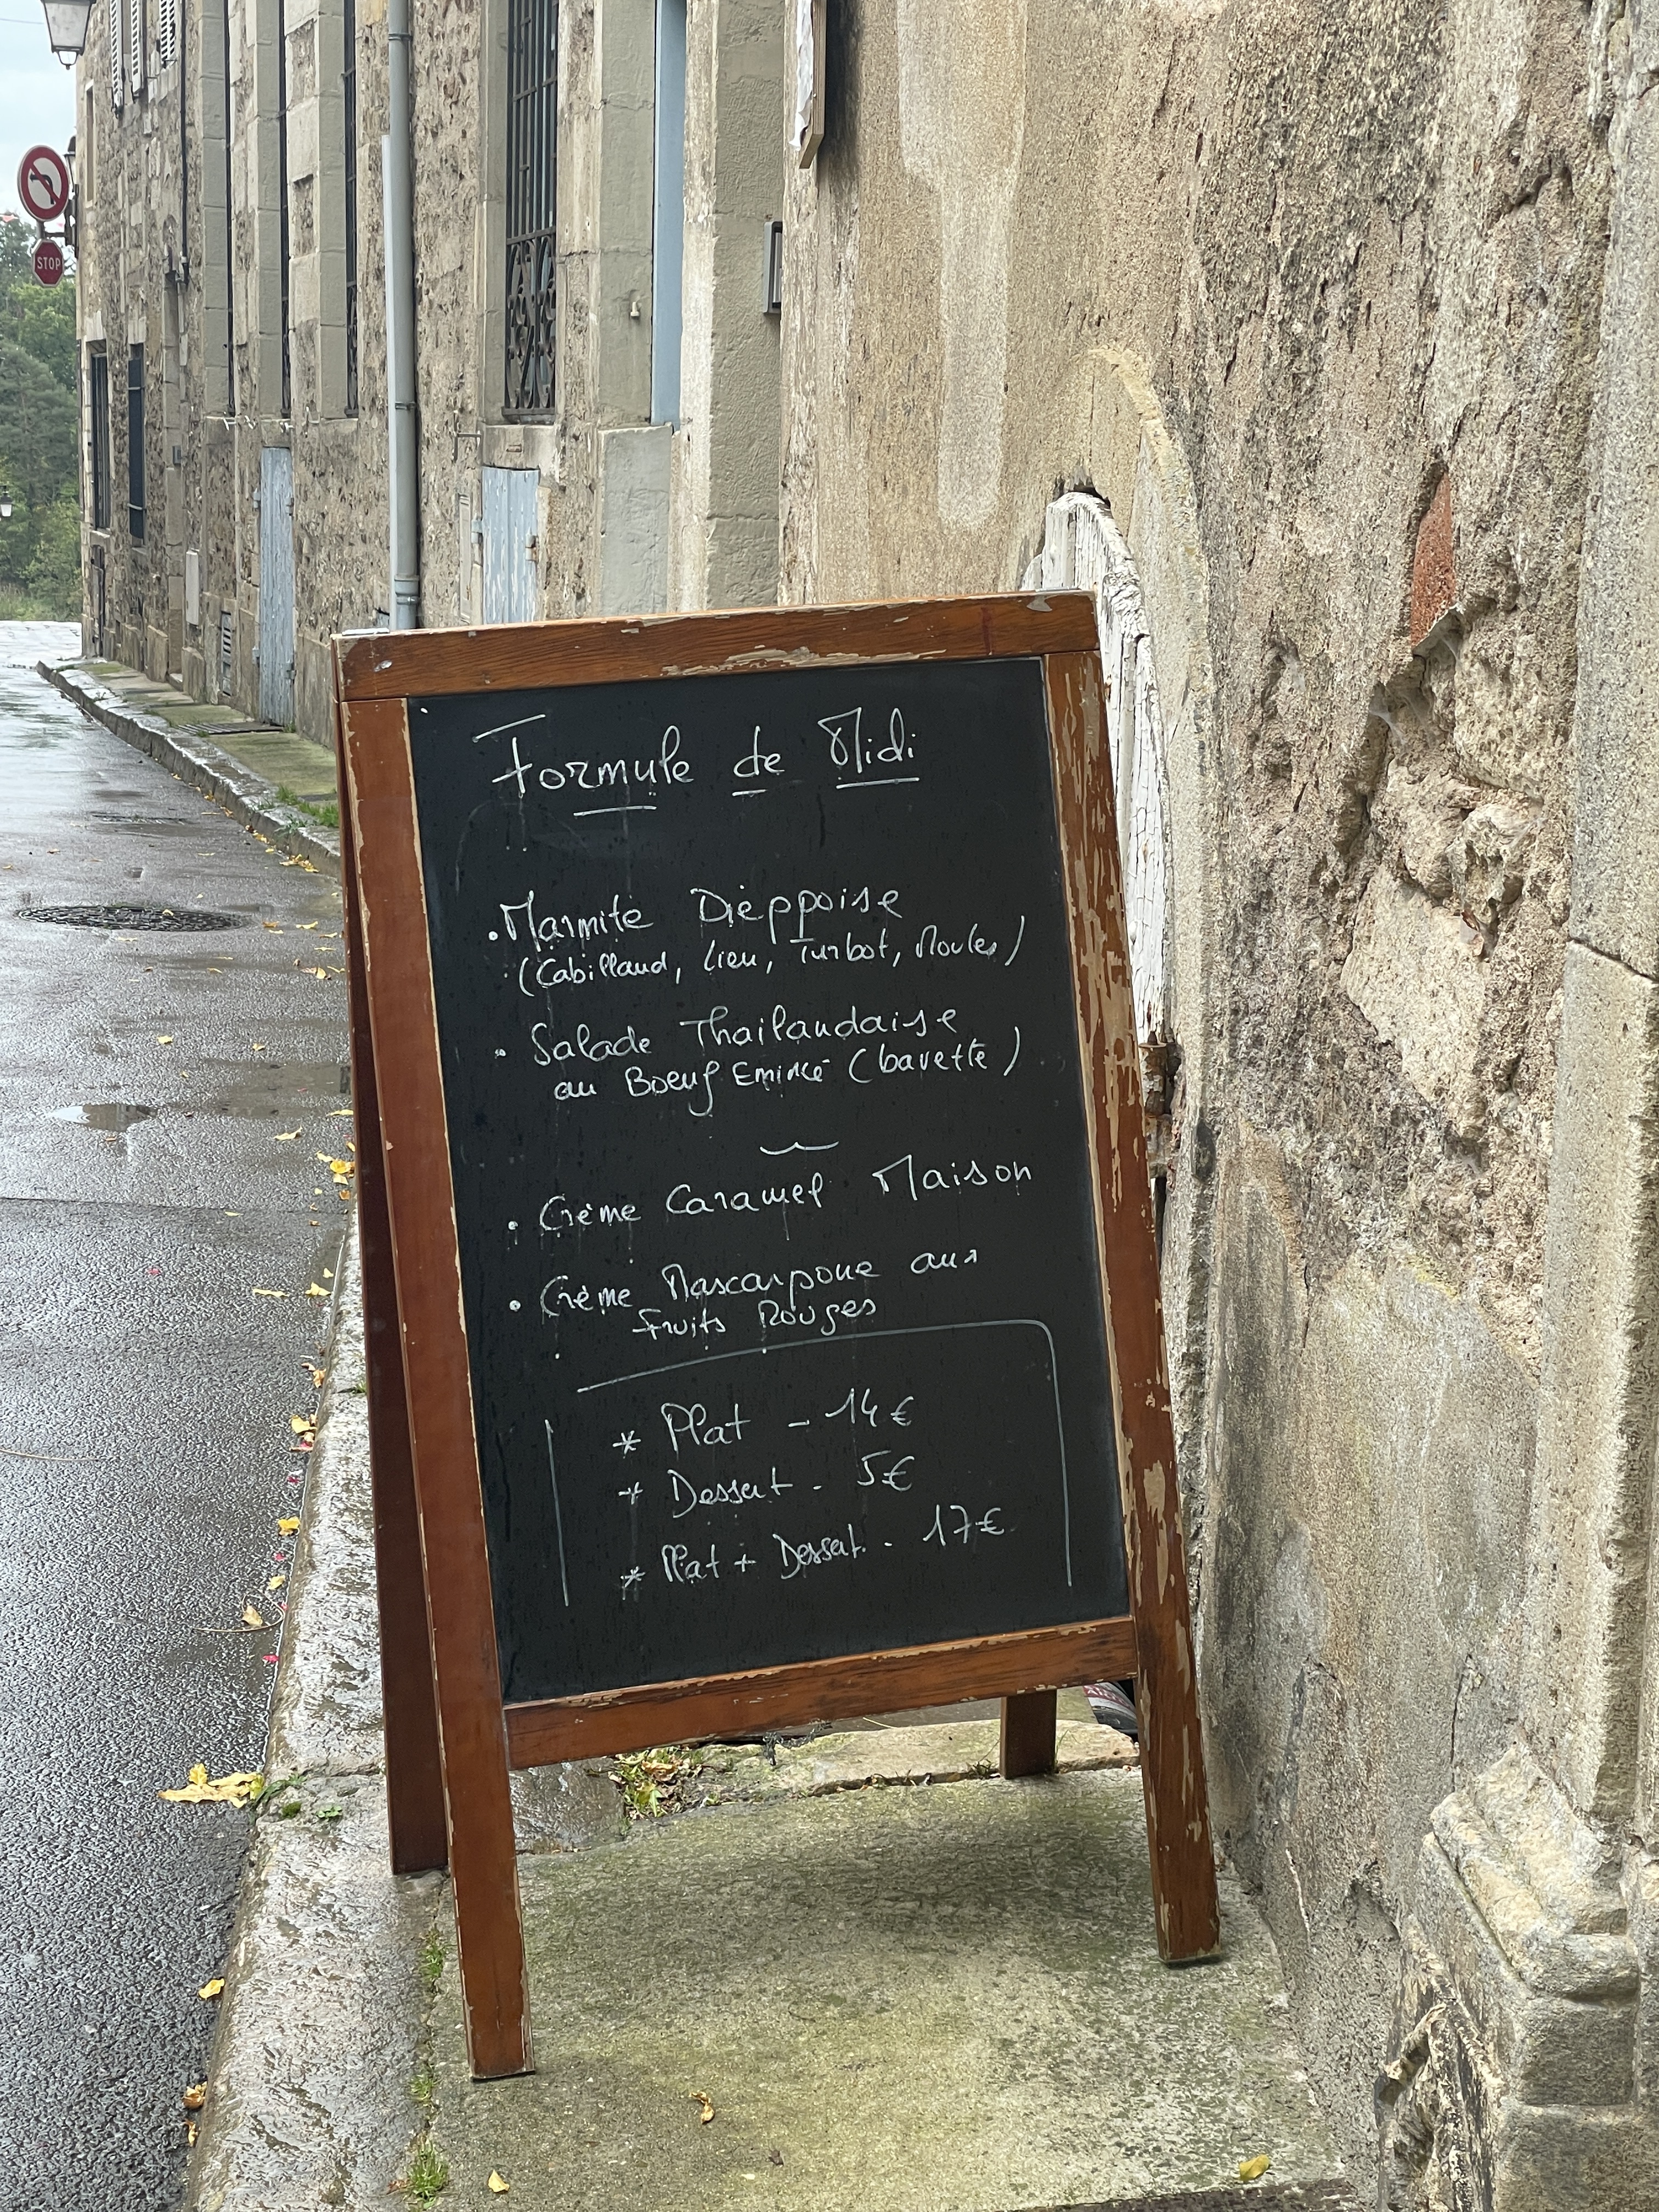 STOP
Formule de Midi
• Marmite Dièppoise
(Cabillaud, Lieu, Turbot, Moules)
• Salade Thailandaise
au Boeuf Emincé (bavette)
• Crème Caramel Maison
• Crème Mascarpone aux
Fruits Rouges
* Plat - 14€
* Dessert - 5€
* Plat + Dessert - 17€